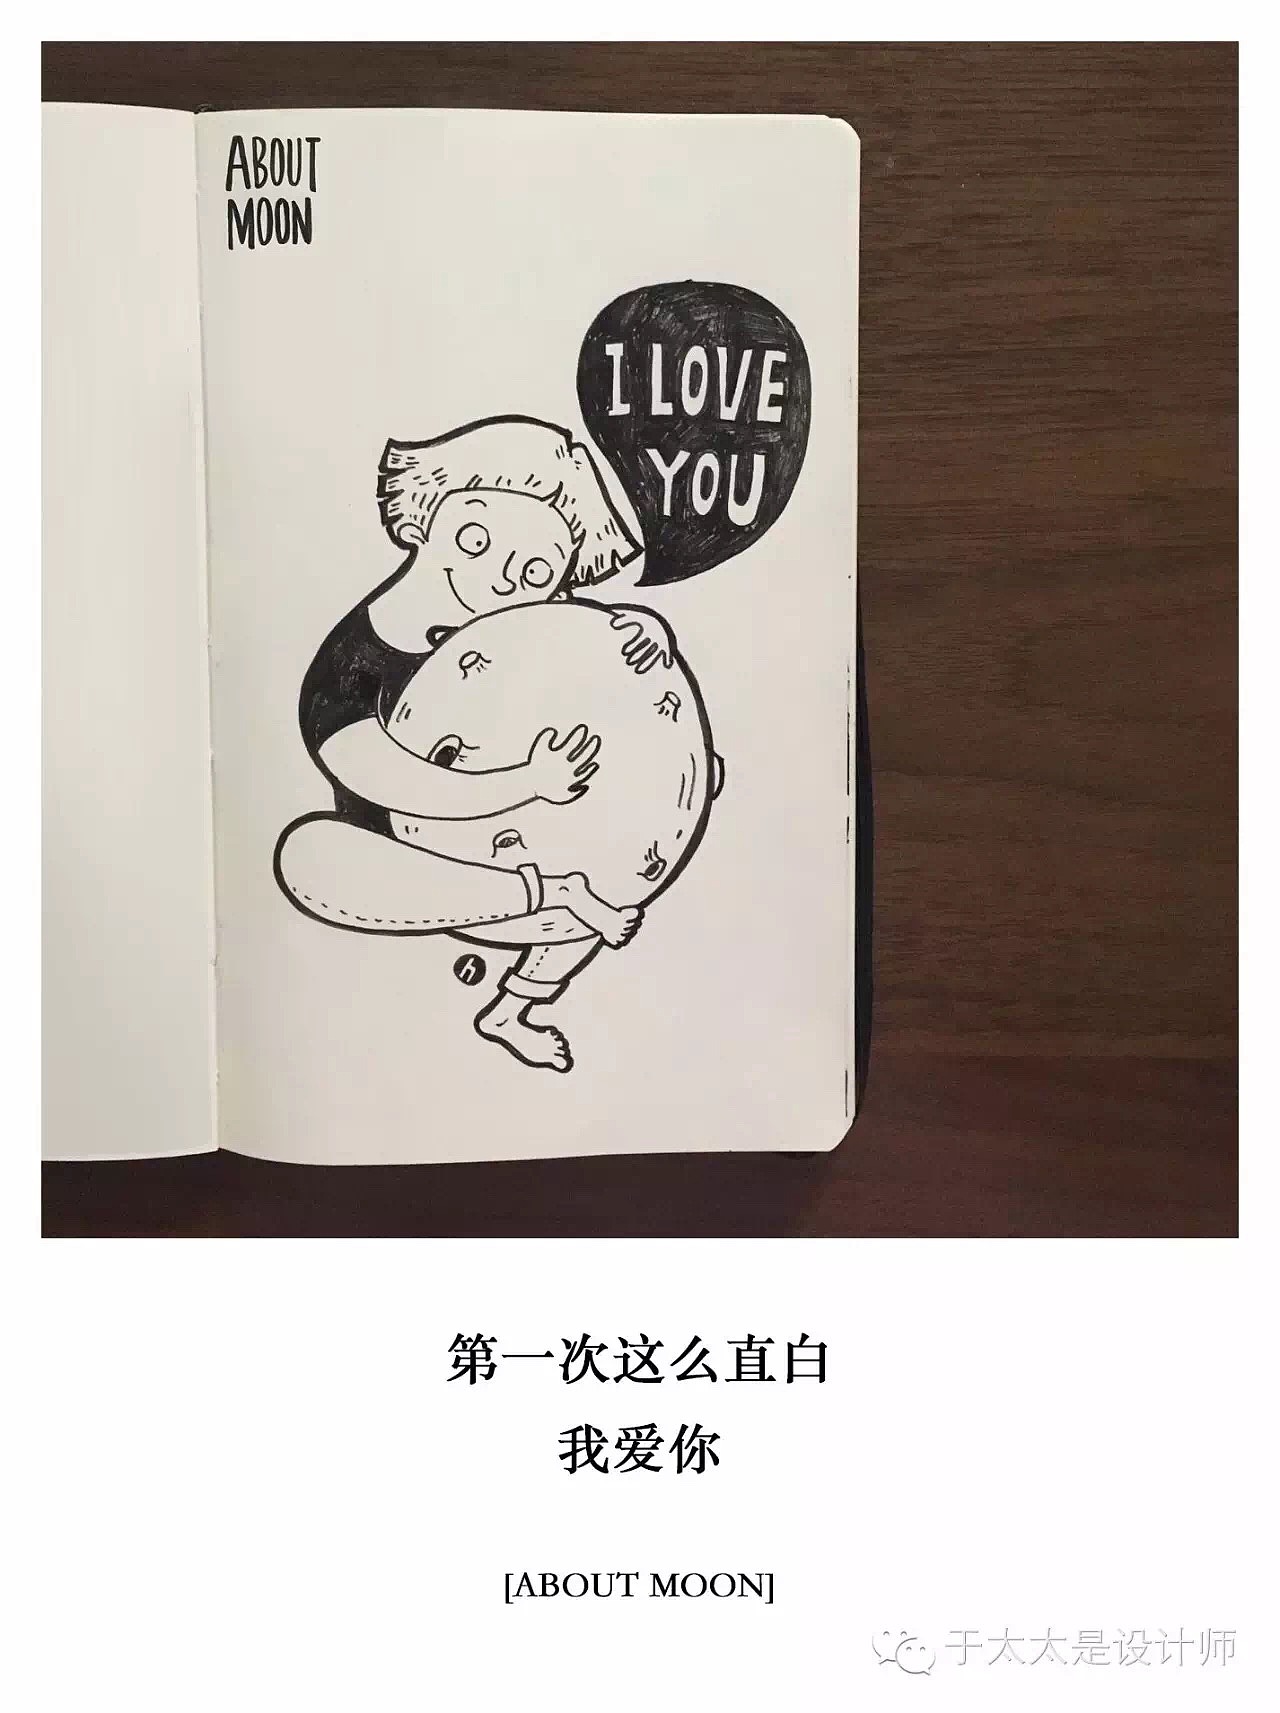 ABOUT
MOON
I LOVE
YOU
h
第一次这么直白
我爱你
[ABOUT MOON]
于太太是设计师